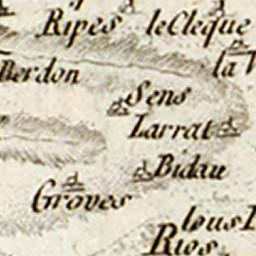 Ripes
le Cleque
la
Berdon
Sens
Larrat
Bidau
Groves
lous
Rios